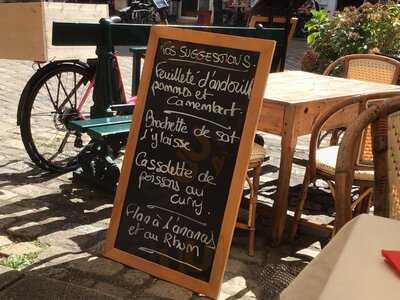 Nos SUGGESTIONS
Feuilleté d'andouille
pommes et
camembert.
Brochette de
Cassolette de
poissons au
curry.
Flan à l'ananas
et au Rhum